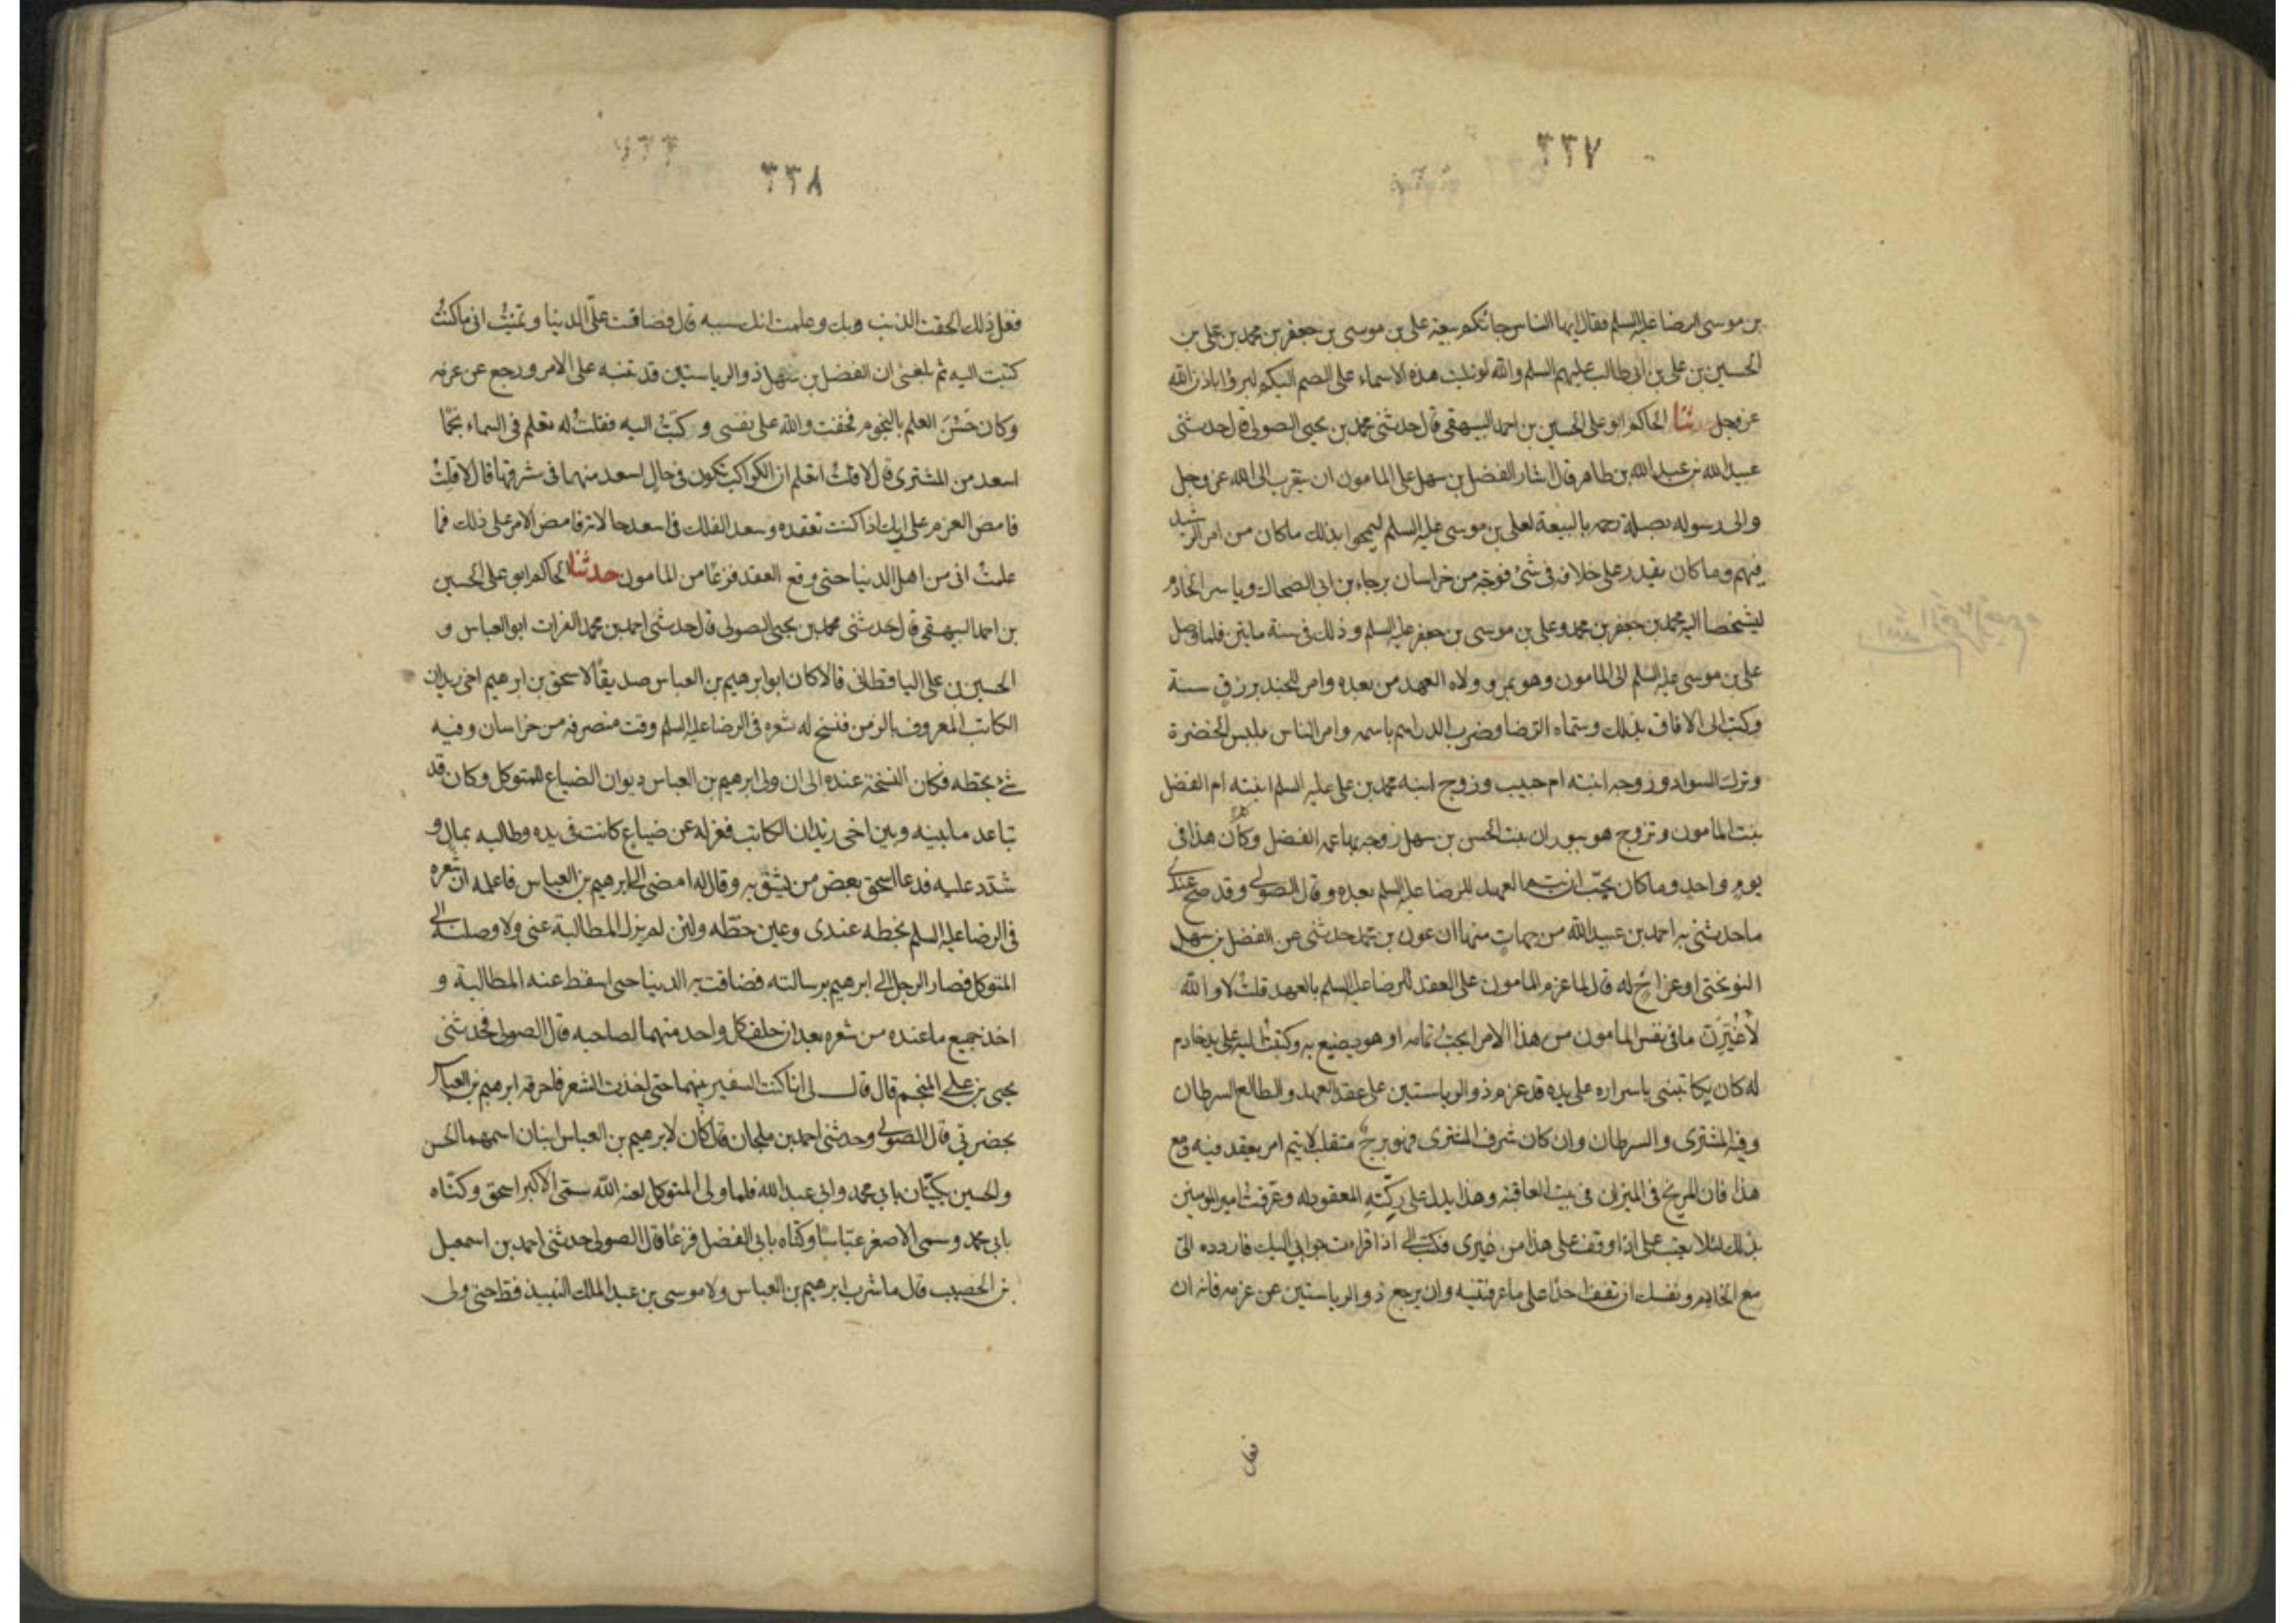 ٣٣٧
بن موسى الرضا عليه السلم فقال ايها الناس جائكم بيعة على بن موسى بن جعفر بن محمد بن على بن
الحسين بن على بن ابى طالب عليهم السلم والله لو تليت هذه الاسماء على الصم البكم لبرؤا باذن الله
عز وجل حدثنا الحاكم ابو على الحسين بن احمد البيهقى قال حدثنى محمد بن يحيى الصولى قال حدثنى
عبيد الله بن عبد الله بن طاهر قال اشار الفضل بن سهل على المامون ان يتقرب الى الله عز وجل
والى رسوله بصلة رحمه بالبيعة لعلى بن موسى عليه السلم ليمحوا بذلك ماكان من امر الرشيد
فيهم وما كان يقدر على خلافه فى شئ فوجه من خراسان برجاء بن ابى الضحاك وياسر الخادم
ليشخصا اليه محمد بن جعفر بن محمد وعلى بن موسى بن جعفر عليه السلم وذلك فى سنة مايتين فلما وصل
على بن موسى عليه السلم الى المامون وهو بمرو ولاه العهد من بعده وامر للجند برزق سنة
وكتب الى الافاق بذلك وسماه الرضا وضرب الدراهم باسمه وامر الناس بلبس الخضرة
وترك السواد وزوجه ابنته ام حبيب وزوج ابنه محمد بن على عليه السلم ابنته ام الفضل
بنت المامون وتزوج هو ببوران بنت الحسن بن سهل زوجه بها عمه الفضل وكان هذا فى
يوم واحد وما كان يحب ان يتم العهد للرضا عليه السلم بعده وقال الصولى وقد صح عندى
ماحدثنى به احمد بن عبيد الله من جهات منها ان عون بن محمد حدثنى عن الفضل بن سهل
النوبختى او عن اخ له قال لما عزم المامون على العقد للرضا عليه السلم بالعهد قلت لا والله
لأغيرن مافى نفس المامون من هذا الامر ايحب تمامه او هو يصنع به وكتبت اليه على يد خادم
له كان يكاتبنى باسراره على يده قد عزم ذو الرياستين على عقد العهد والطالع السرطان
وفيه المشترى والسرطان وان كان شرف المشترى فهو برج منقلب لا يتم امر يعقد فيه ومع
هذا فان المريخ فى الميزان فى بيت العاقبة وهذا يدل على ركّتة المعقود له وعرفت امير المومنين
بذلك لئلا يعتب على اذا وقف على هذا من غيرى فكتب الى اذا قراءت جوابى اليك فاردده الى
مع الخادم ونفسك ان تقف احدا على ما عرفتنيه وان يرجع ذو الرياستين عن عزمه فانه ان
فعل
٣٣٨
فعل ذلك الحقت الذنب وبك وعلمت انك سببه قال فضاقت على الدنيا وتمنيت انى ماكنت
كتبت اليه ثم بلغنى ان الفضل بن سهل ذو الرياستين قد تنبه على الامر ورجع عن عزمه
وكان حسن العلم بالنجوم فخفت والله على نفسى وركبت اليه فقلت له تعلم فى السماء نجما
اسعد من المشترى قال لا قلت اتعلم ان الكواكب تكون فى حال اسعد منها فى شرفها قال لا قلت
فامض العزم على رايك اذا كنت تعقده وسعد الفلك فى اسعد حالاته فامض الامر على ذلك فما
علمت انى من اهل الدنيا حتى وقع العقد فزعا من المامون حدثنا الحاكم ابو على الحسين
بن احمد البيهقى قال حدثنى محمد بن يحيى الصولى قال حدثنى احمد بن محمد الفرات ابو العباس و
الحسين بن على الباقطانى قالا كان ابو ابرهيم بن العباس صديقا لاسحق بن ابرهيم اخى زيدان
الكاتب المعروف بالزمن فنسخ له شعره فى الرضا عليه السلم وقت منصرفه من خراسان وفيه
شئ بخطه فكان النسخة عنده الى ان ولى ابرهيم بن العباس ديوان الضياع للمتوكل وكان قد
تباعد مابينه وبين اخى زيدان الكاتب فعزله عن ضياع كانت فى يده وطالبه بمال و
شدد عليه فدعا اسحق بعض من يثق به وقال له امضى الى ابرهيم بن العباس فاعلمه ان شعره
فى الرضا عليه السلم بخطه عندى وعين خطه ولئن لم يزل المطالبة عنى ولاوصلنه الى
المتوكل فصار الرجل الى ابرهيم برسالته فضاقت به الدنيا حتى اسقط عنه المطالبة و
اخذ جميع ماعنده من شعره بعد ان حلف كل واحد منهما لصاحبه قال الصولى فحدثنى
يحيى بن على المنجم قال قال لى انا كنت السفير بينهما حتى اخذت الشعر فاحرقه ابرهيم بن العباس
بحضرتى قال الصولى وحدثنى احمد بن ملحان قال كان لابرهيم بن العباس ابنان اسمهما الحسن
والحسين يكنيان بابى محمد وابى عبد الله فلما ولى المتوكل لعنه الله سمى الاكبر اسحق وكناه
بابى محمد وسمى الاصغر عباسا وكناه بابى الفضل فزعا قال الصولى حدثنى احمد بن اسمعيل
بن الخصيب قال ماشرب ابرهيم بن العباس ولا موسى بن عبد الملك النبيذ قط حتى ولى